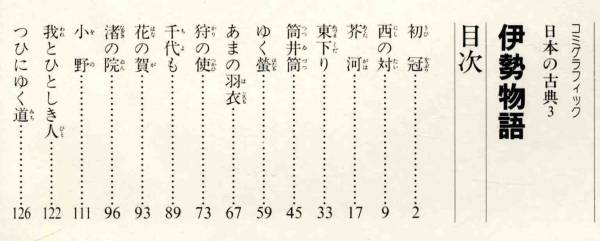 コミグラフィック
日本の古典3
伊勢物語
目次
初冠……2
西の対……9
芥河……17
東下り……33
筒井筒……45
ゆく螢……59
あまの羽衣……67
狩の使……73
千代も……89
花の賀……93
渚の院……96
小野……111
我とひとしき人……122
つひにゆく道……126